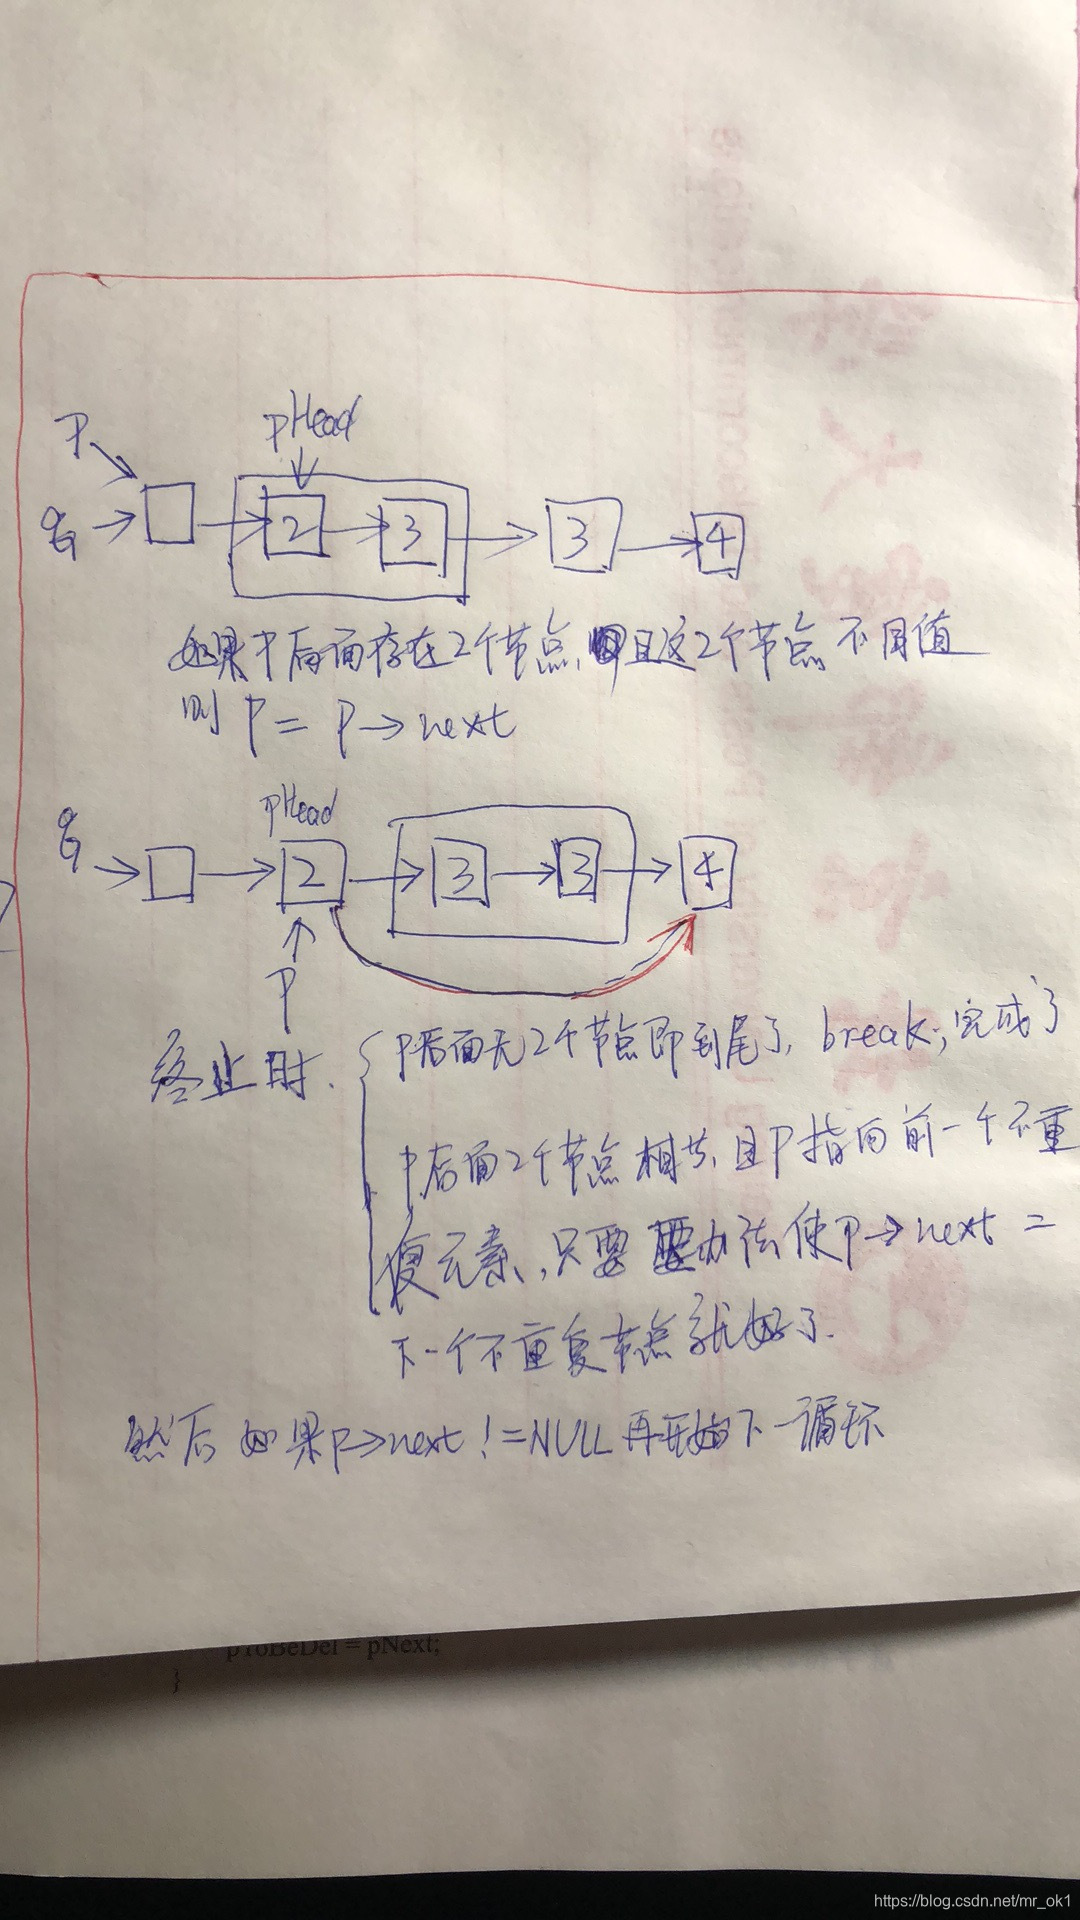 P
pHead
q
2
3
3
4
如果P后面存在2个节点,且这2个节点不同值
则 P = P→next
q
pHead
2
3
3
4
P
终止时.
P后面无2个节点即到尾了, break; 完成了
P后面2个节点相共,且P指向前一个不重
复元素,只要 办法使P→next =
下一个不重复节点就好了.
然后 如果P→next != NULL 再开始下一循环
pToBeDel = pNext;
}
https://blog.csdn.net/mr_ok1